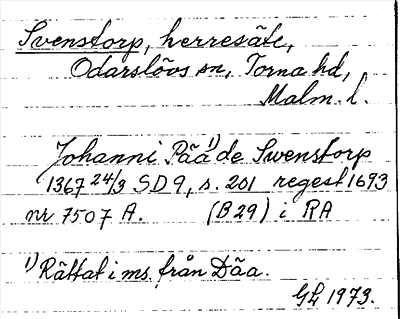 Svenstorp, herresäte,
Odarslövs sn, Torna hd,
Malm. l.
Johanni Pää¹⁾ de Swenstorp
1367 24/3 SD 9, s. 201 regest 1693
nr 7507 A. (B 29) i RA
1) Rättat i ms. från Dää.
GH 1973.